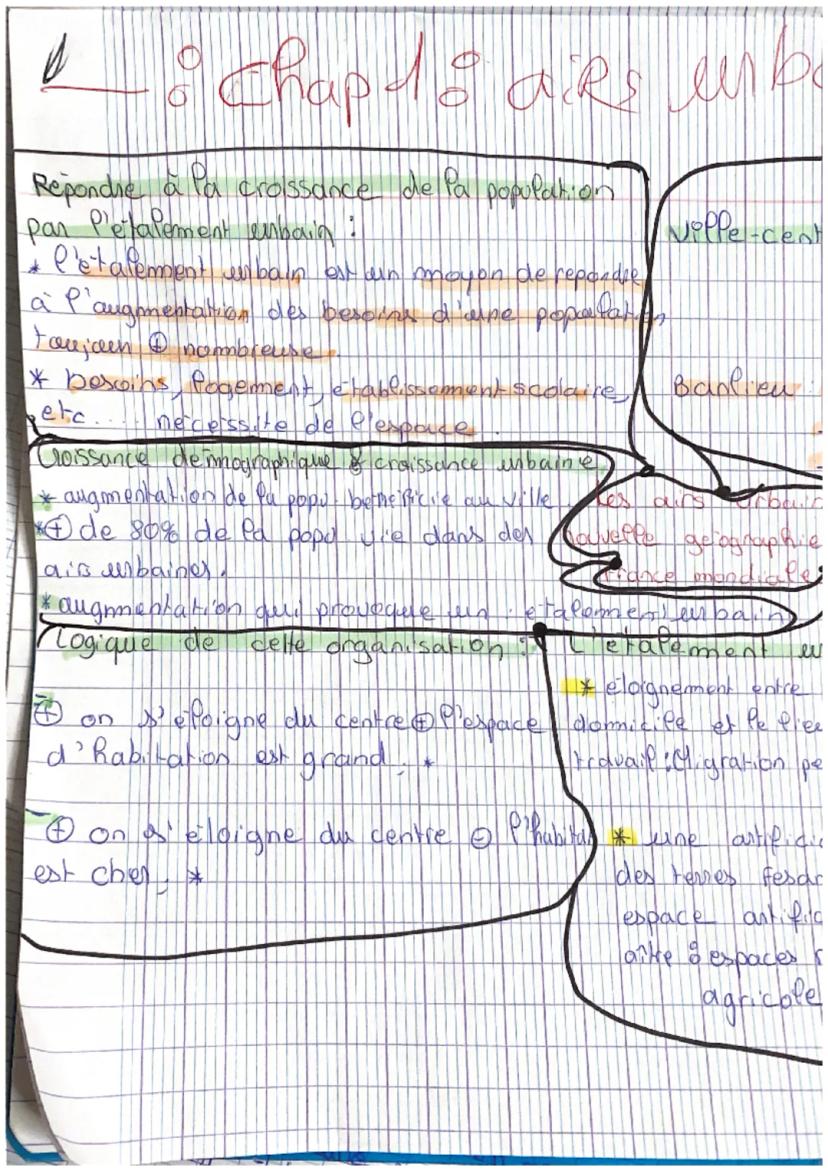 : Chap 1 : airs urba
Répondre à la croissance de la population
par l'étalement urbain :
* l'étalement urbain est un moyon de repondre
à l'augmentation des besoins d'une population
toujour ⊕ nombreuse.
* besoins, logement, établissement scolaire,
etc.... nécessite de l'espace.
ville-cent
Banlieu :
Croissance démographique & croissance urbaine
* augmentation de la popu. beneficie au ville
* ⊕ de 80% de la popu vie dans des
airs urbaines.
* augmentation qui provoque un étalement urbain
Les airs urbain
nouvelle géographie
France mondiale
Logique de cette organisation :
⊕ on s'éloigne du centre ⊕ l'espace
d'habitation est grand. *
⊕ on s'éloigne du centre ⊖ l'habitat
est cher. *
L'étalement ur
* éloignement entre
domicile et le lieu
travail : Migration pe
* une artifici
des terres fesan
espace artific
aître : espaces
agricole